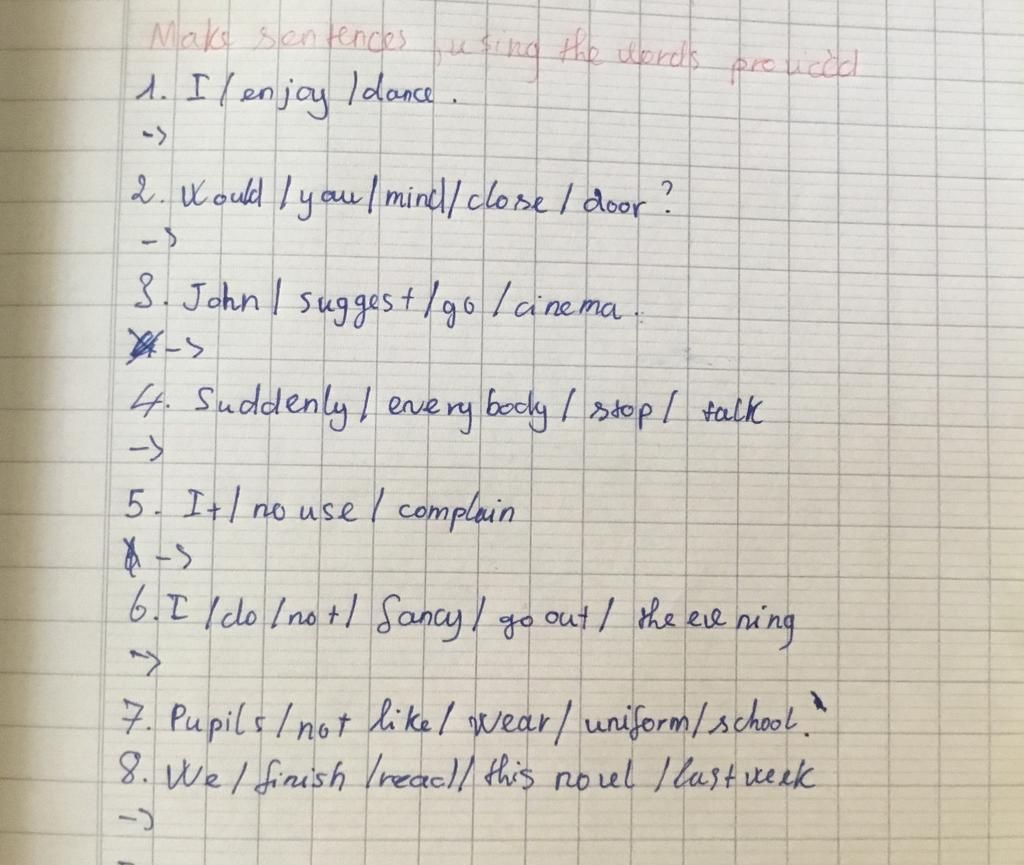 Make sentences, using the words provided
1. I / enjoy / dance.
->
2. Would / you / mind / close / door?
->
3. John / suggest / go / cinema.
->
4. Suddenly / everybody / stop / talk
->
5. It / no use / complain
->
6. I / do / not / fancy / go out / the evening
->
7. Pupils / not like / wear / uniform / school.
8. We / finish / read / this novel / last week
->